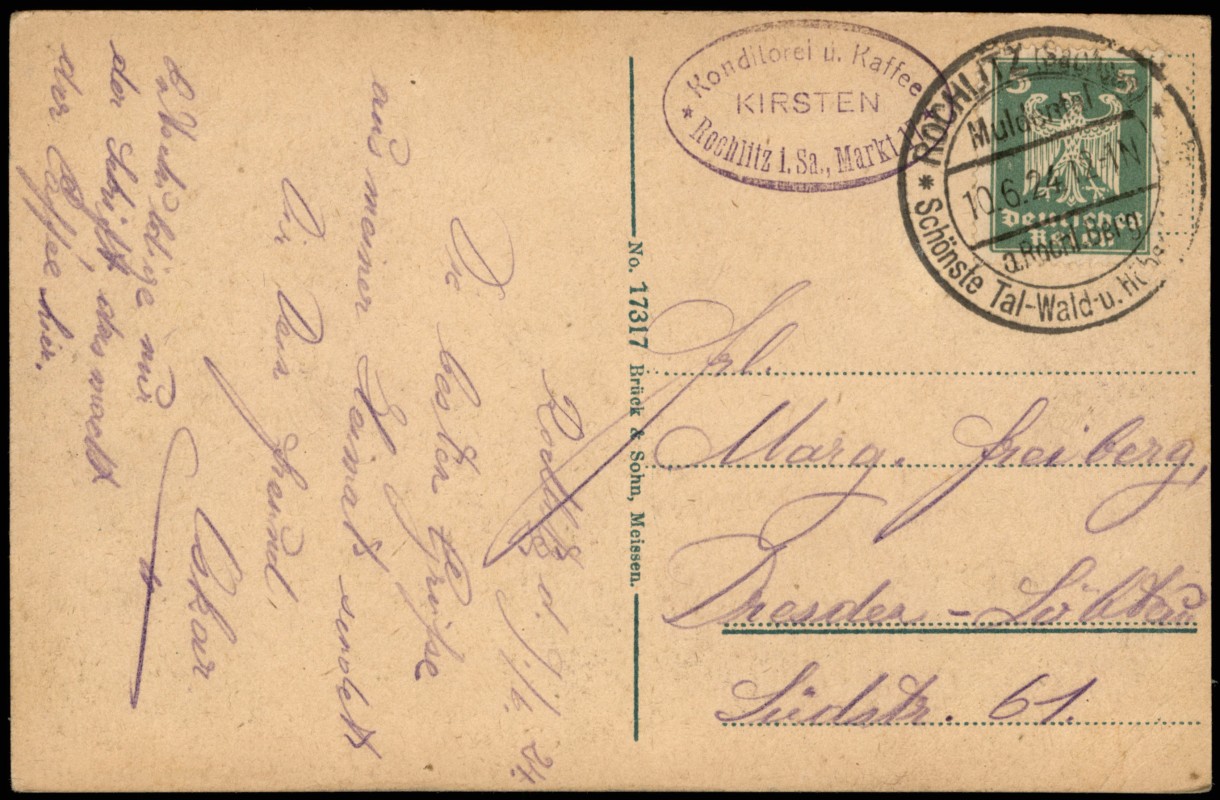 Konditorei u. Kaffee
KIRSTEN
* Rochlitz i. Sa., Markt
* ROCHLITZ (Sachsen) *
Muldental
10.6.24.12-1N
a. Rochl. Berg
Schönste Tal-Wald-u. Höhen
5 5
Deutsches
Reich
No. 17317 Brück & Sohn, Meissen.
Frl.
Marg. Freiberg,
Dresden - Löbtau
Südstr. 61.
Rochlitz d. 9/6. 24.
Die besten Grüße
aus meiner Heimat sendet
Dir Dein Freund.
Oskar
nur
der Schrift, das macht
der Caffee hier.